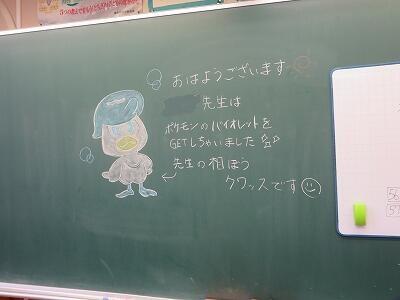 おはようございます
先生は
ポケモンのバイオレットを
GETしちゃいました
先生の相ぼう
クワッスです